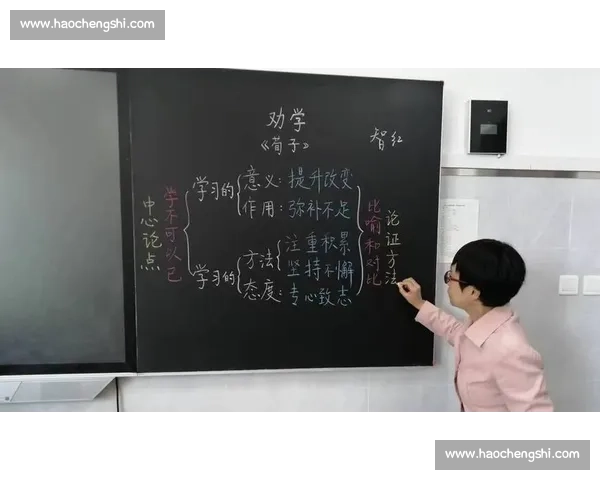 www.haochengshi.com
劝学
《荀子》
智红
中心论点
学不可以已
学习的
意义：提升改变
作用：弥补不足
学习的
方法
注重积累
坚持不懈
态度：专心致志
比喻和对比
论证方法
www.haochengshi.com